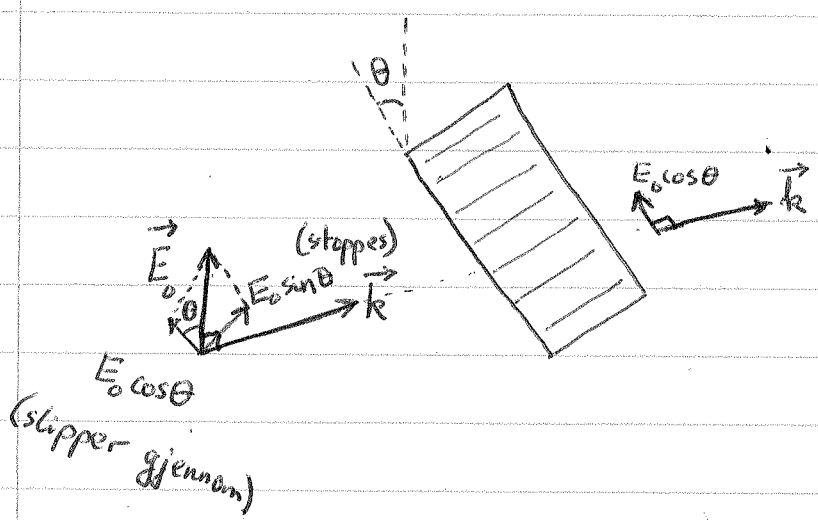 θ
E₀ cosθ
k⃗
(stoppes)
E⃗₀
θ
E₀ sinθ
k⃗
E₀ cosθ
(slipper gjennom)